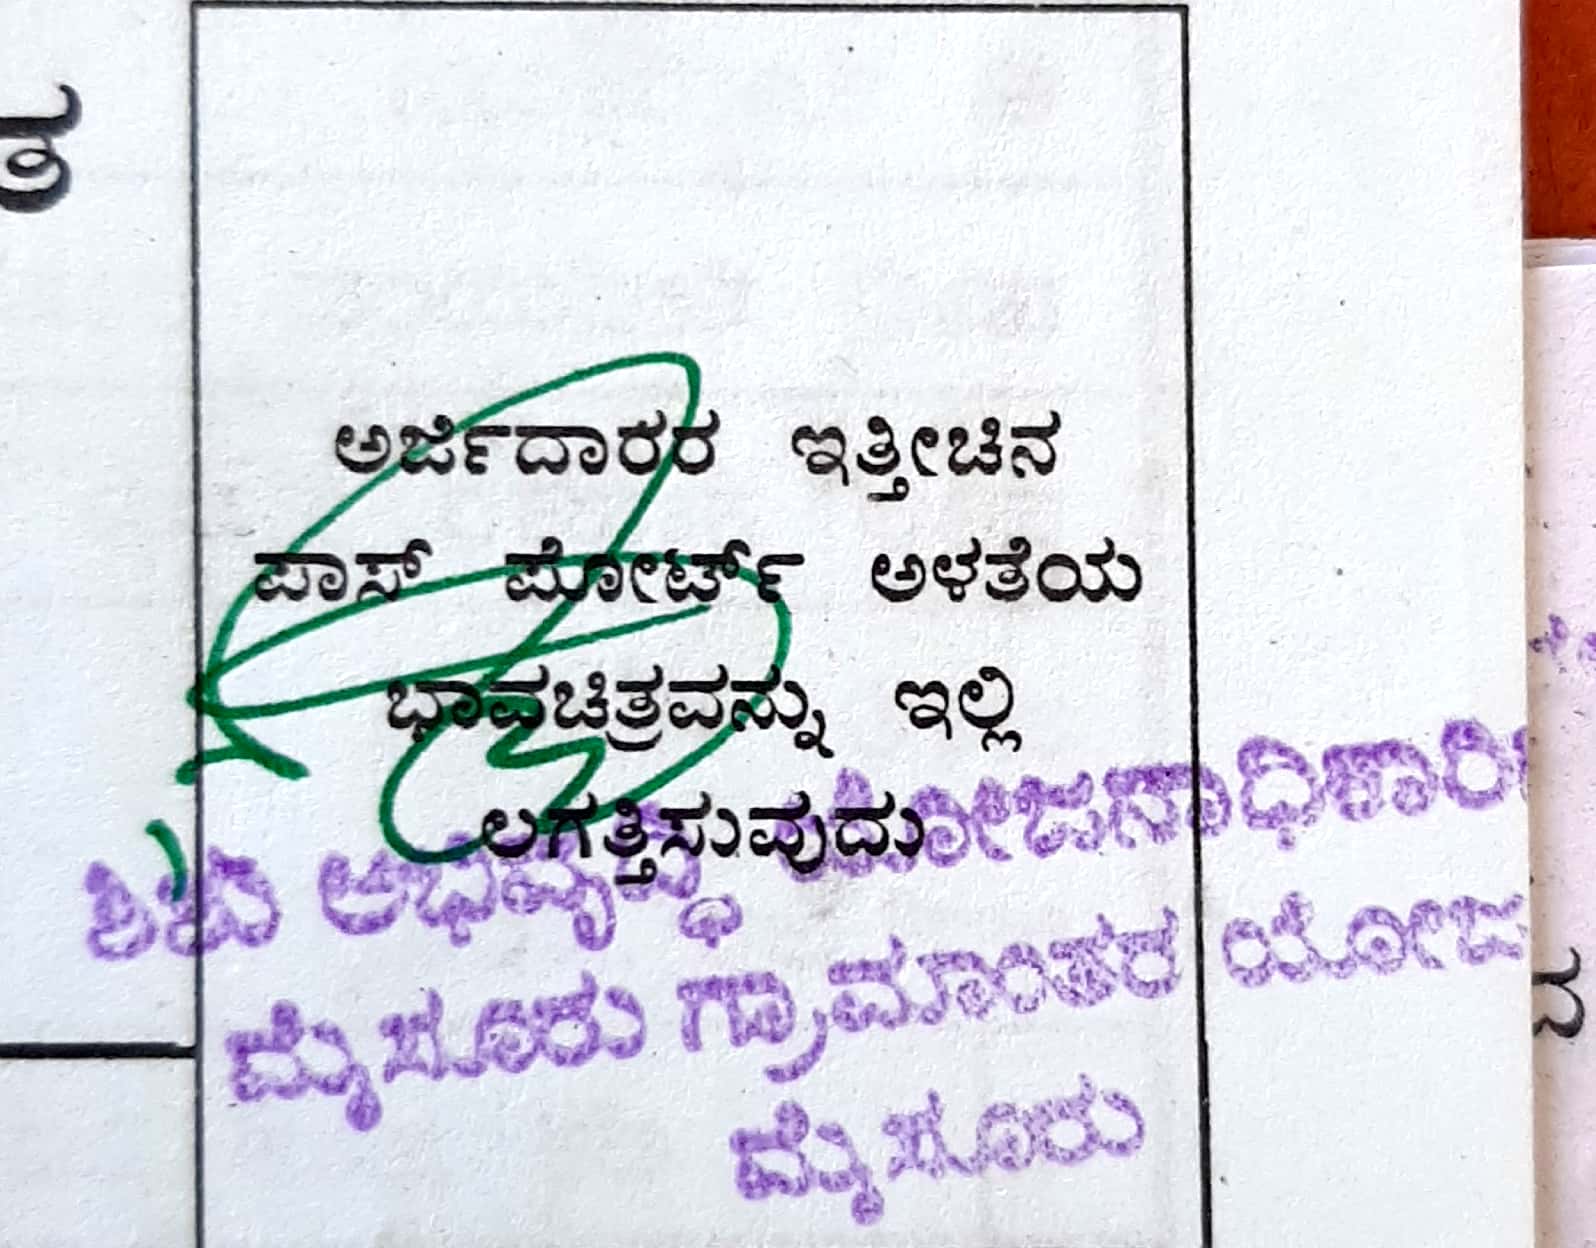 ಅರ್ಜಿದಾರರ ಇತ್ತೀಚಿನ
ಪಾಸ್ ಪೋರ್ಟ್ ಅಳತೆಯ
ಭಾವಚಿತ್ರವನ್ನು ಇಲ್ಲಿ
ಲಗತ್ತಿಸುವುದು
ಶಿಶು ಅಭಿವೃದ್ಧಿ ಯೋಜನಾಧಿಕಾರಿ
ಮೈಸೂರು ಗ್ರಾಮಾಂತರ ಯೋಜ
ಮೈಸೂರು